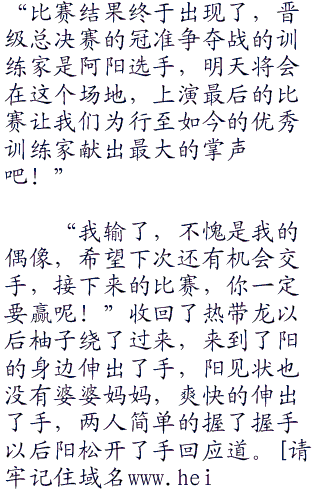 “比赛结果终于出现了，晋
级总决赛的冠准争夺战的训
练家是阿阳选手，明天将会
在这个场地，上演最后的比
赛让我们为行至如今的优秀
训练家献出最大的掌声
吧！”
“我输了，不愧是我的
偶像，希望下次还有机会交
手，接下来的比赛，你一定
要赢呢！”收回了热带龙以
后柚子绕了过来，来到了阳
的身边伸出了手，阳见状也
没有婆婆妈妈，爽快的伸出
了手，两人简单的握了握手
以后阳松开了手回应道。[请
牢记住域名www.hei